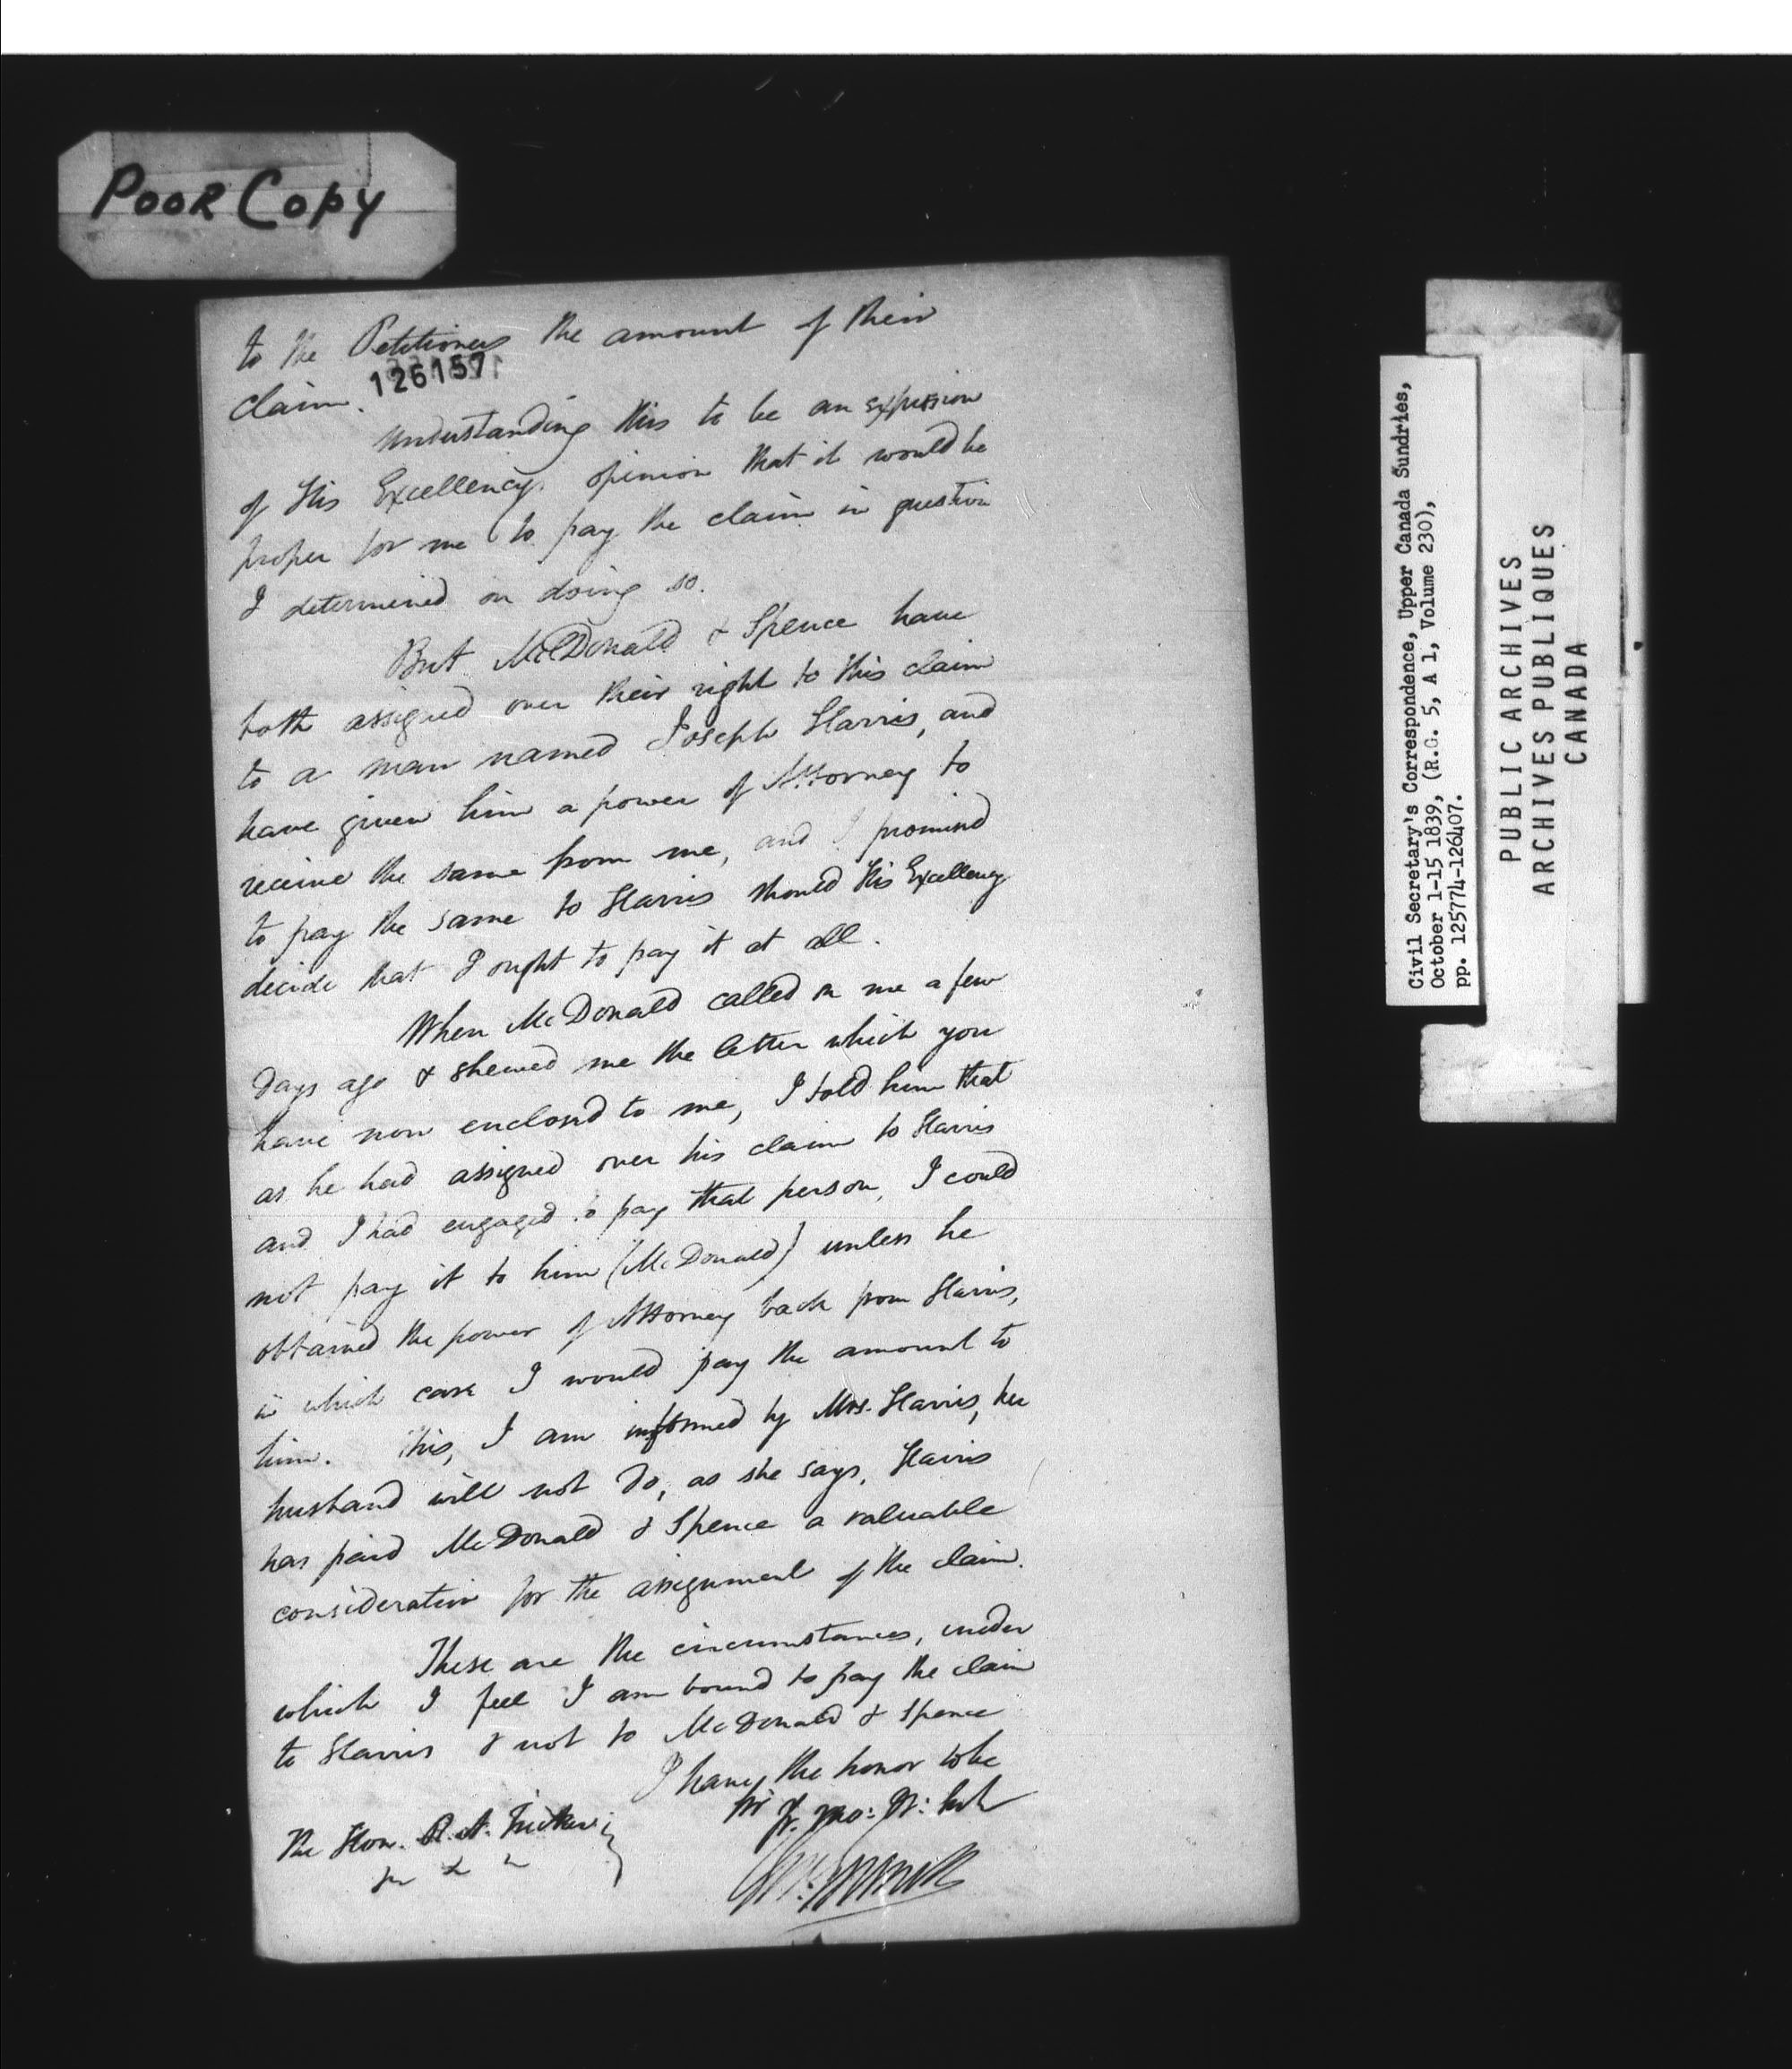 POOR COPY
to the Petitioners the amount of their
126157
claim.
Understanding this to be an expression
of His Excellency's opinion that it would be
proper for me to pay the claim in question
I determined on doing so.
But McDonald & Spence have
both assigned over their right to this claim
to a man named Joseph Harris, and
have given him a power of Attorney to
receive the same from me, and I promised
to pay the same to Harris should His Excellency
decide that I ought to pay it at all.
When McDonald called on me a few
days ago & shewed me the letter which you
have now enclosed to me, I told him that
as he had assigned over his claim to Harris
and I had engaged to pay that person, I could
not pay it to him (McDonald) unless he
obtained the power of Attorney back from Harris,
in which case I would pay the amount to
him. This, I am informed by Mrs. Harris, her
husband will not do, as she says, Harris
has paid McDonald & Spence a valuable
consideration for the assignment of the claim.
These are the circumstances, under
which I feel I am bound to pay the claim
to Harris & not to McDonald & Spence
I have the honor to be
Sir
The Hon. R. A. Tucker
Civil Secretary's Correspondence, Upper Canada Sundries,
October 1-15 1839, (R.G. 5, A 1, Volume 230),
pp. 125774-126407.
PUBLIC ARCHIVES
ARCHIVES PUBLIQUES
CANADA